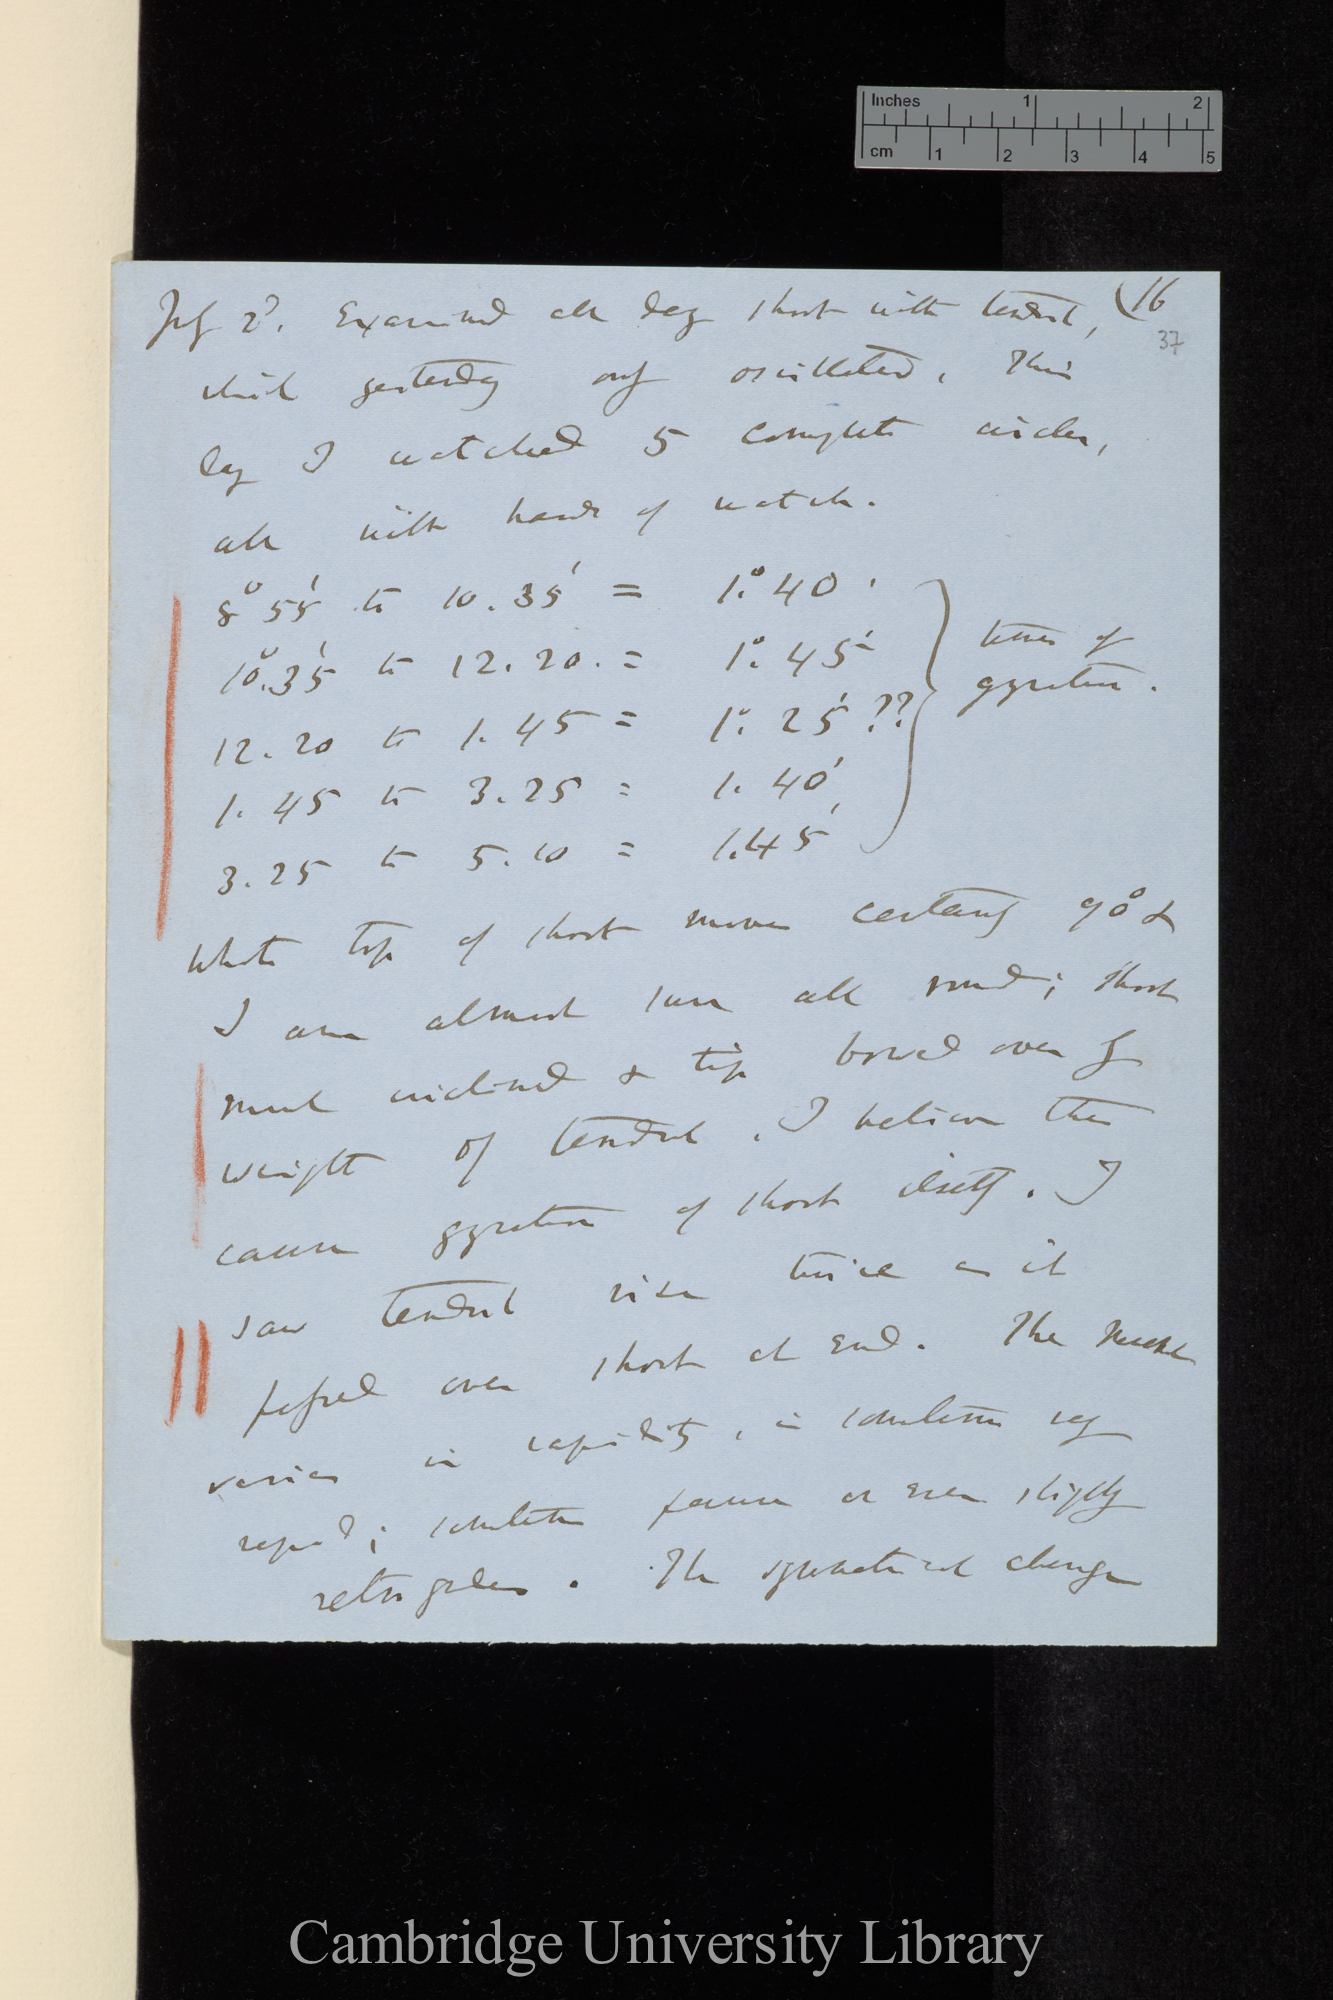 Inches 1 2
cm 1 2 3 4 5
(16
37
July 2d. Examined all day shoot with tendril,
which yesterday only oscillated. This
day I watched 5 complete circles,
all with hands of watch.
8° 55' to 10. 35' = 1°. 40'
10°. 35' to 12. 20. = 1°. 45'
12. 20 to 1. 45 = 1°. 25' ??
1. 45 to 3. 25 = 1. 40'
3. 25 to 5. 10 = 1. 45'
times of
gyration.
Whole top of shoot moves certainly 90° &
I am almost sure all round; shoot
much inclined & tip bowed over by
weight of tendril. I believe this
causes gyration of shoot itself. I
saw tendril rise twice as it
passed over shoot at end. The
varies in rapidity, is sometimes very
rapid; sometimes pauses or even slightly
retrogrades. The symmetrical change
Cambridge University Library